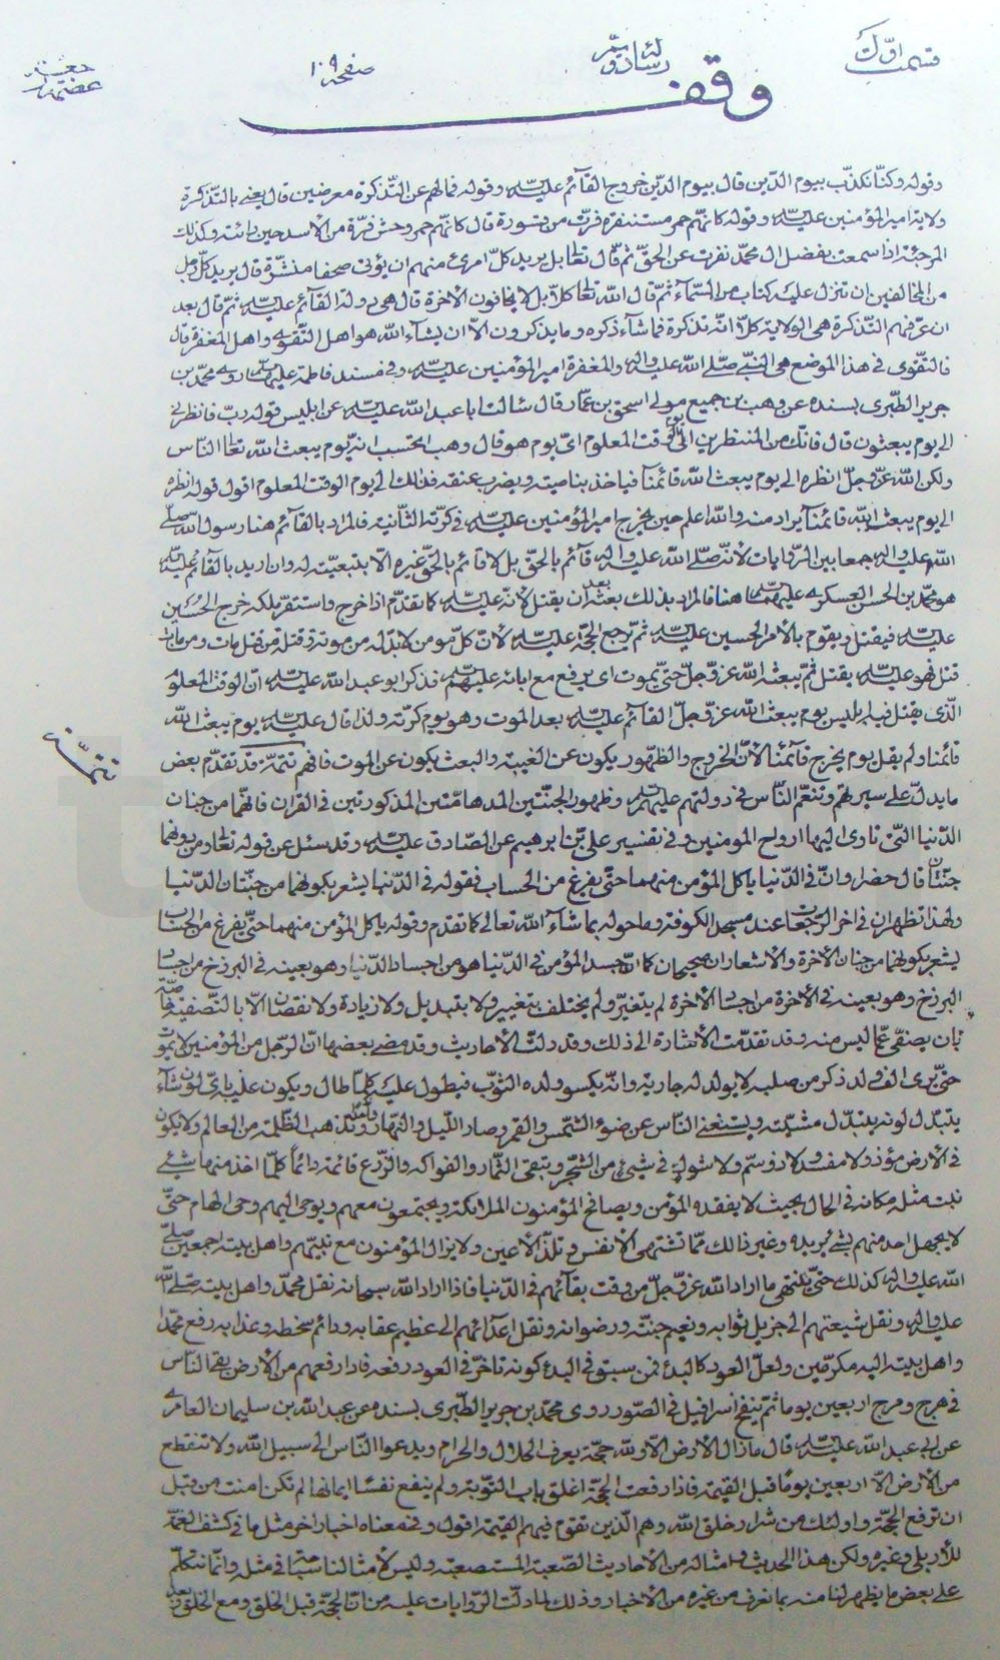 قسمت اول
صفحه ١٠٩
وقف
وقوله وكنّا نكذّب بيوم الدّين قال بيوم الدّين خروج القآئم عليه السلم وقوله فمالهم عن التّذكرة معرضين قال يعنى بالتّذكرة
ولاية امير المؤمنين عليه السلم وقوله كانّهم حمر مستنفرة فرّت من قسورة قال كانّهم حمر وحش فرّت من الأسد حين رأته وكذلك
المرجئة اذا سمعت بفضل ال محمّد نفرت عن الحقّ ثم قال تعالى بل يريد كلّ امرئ منهم ان يؤتى صحفا منشّرة قال يريد كلّ رجل
من المخالفين ان تنزل عليه كتاب من السّمآء ثم قال الله تعالى كلاّ بل لا يخافون الاخرة قال هى دولة القآئم عليه السلم ثم قال بعد
ان عرّفهم التّذكرة هى الولاية كلاّ انّه تذكرة فمن شآء ذكره وما يذكرون الاّ ان يشآء الله هو اهل التّقوى واهل المغفرة قال
فالتّقوى فى هذا الموضع هى النّبى صلّى الله عليه واله والمغفرة امير المؤمنين عليه السلم وفى مسند فاطمة عليها السلم روى محمّد بن
جرير الطّبرى بسنده عن وهب بن جميع مولى اسحق بن عمّار قال سالت ابا عبد الله عليه السلم عن ابليس قوله ربّ فانظرنى
الى يوم يبعثون قال فانّك من المنظرين الى يوم الوقت المعلوم اىّ يوم هو قال وهب اتحسب انّه يوم يبعث الله تعالى النّاس
ولكن الله عزّ وجلّ انظره الى يوم يبعث الله قآئمنا فياخذ بناصيته ويضرب عنقه فذلك الى يوم الوقت المعلوم اقول قوله انظره
الى يوم يبعث الله قآئمنا يراد منه والله اعلم حين يخرج امير المؤمنين عليه السلم فى كرّته الثّانية فالمراد بالقآئم هنا رسول الله صلّى
الله عليه واله جمعا بين الرّوايات لأنّه صلّى الله عليه واله قآئم بالحقّ بل لا قآئم بالحقّ غيره الا بتبعيّته له وان اريد بالقآئم عليه السلم
هو محمّد بن الحسن العسكرى عليهما السلم هنا فالمراد بذلك بعثه بعد ان يقتل لأنّه عليه السلم كما تقدّم اذا خرج واستقرّ ملكه خرج الحسين
عليه السلم فيقتل ويقوم بالأمر الحسين عليه السلم ثم يرجع الحجّة عليه السلم لأنّ كلّ مؤمن لا بدّ له من موتة وقتلة من قتل مات ومن مات
قتل فهو عليه السلم يقتل ثمّ يبعثه الله عزّ وجلّ حتّى يموت اى يرفع مع ابائه عليهم السلم فذكر ابو عبد الله عليه السلم انّ الوقت المعلوم
الّذى يقتل فيه ابليس يوم يبعث الله عزّ وجلّ القآئم عليه السلم بعد الموت وهو يوم كرّته ولذا قال عليه السلم يوم يبعث الله
قآئمنا ولم يقل يوم يخرج قآئمنا لأنّ الخروج والظهور يكون عن الغيبة والبعث يكون عن الموت فافهم تتمّة قد تقدّم بعض
تتمّة
ما يدلّ على سيرتهم وتنعّم النّاس فى دولتهم عليهم السلم وظهور الجنّتين المدهامّتين المذكورتين فى القران فانّهما من جنان
الدّنيا الّتى تاوى اليها ارواح المومنين وفى تفسير علىّ بن ابرهيم عن الصّادق عليه السلم وقد سئل عن قوله تعالى ومن دونهما
جنّتان قال خضراوان فى الدّنيا ياكل المؤمن منهما حتّى يفرغ من الحساب فقوله فى الدّنيا يشعر بكونهما من جنّتان الدّنيا
ولهذا تظهران فى اخر الرّجعات عند مسجد الكوفة وما حوله بما شآء الله تعالى كما تقدم وقوله ياكل المؤمن منهما حتّى يفرغ من الحساب
يشعر بكونهما من جنان الأخرة والاشعاران صحيحان كما انّ جسد المؤمن فى الدّنيا هو من اجساد الدّنيا وهو بعينه فى البرزخ من اجساد
البرزخ وهو بعينه فى الأخرة من اجساد الأخرة لم يتغيّر ولم يختلف بتغيير ولا بتبديل ولا زيادة ولا نقصان الاّ بالتّصفية خاصّة
بان يصفّى عمّا ليس منه وقد تقدّمت الأشارة الى ذلك وقد دلّت الأحاديث وقد مضى بعضها انّ الرّجل من المؤمنين لا يموت
حتّى يرى الف ولد ذكر من صلبه لا يولد له جارية وانّه يكسو ولده الثّوب فيطول عليه كلّما طال ويكون عليه باىّ لون شآء
يتبدّل لونه بتبدّل مشيّته ويستغنى النّاس عن ضوء الشّمس والقمر وصار اللّيل والنّهار واحدا وتذهب الظّلمة من العالم ولا يكون
فى الأرض مؤذ ولا مفسد ولا ذو سمّ ولا شوك فى شيئ من الشّجر وتبقى الثّمار والفواكه والزّرع قائمة دائماً كلّما اخذ منها شيئ
نبت مثله مكانه فى الحال بحيث لا يفقده المؤمن ويصافح المؤمنون الملائكة ويجتمعون معهم ويوحى اليهم وحى الهام حتّى
لا يجهل احد منهم شئ يريده وغير ذلك ممّا تشتهى الأنفس وتلذّ الأعين ولا يزال المؤمنون مع نبيّهم واهل بيته اجمعين صلّى
الله عليه واله كذلك حتّى ينتهى ما اراد الله عزّ وجلّ من وقت بقآئهم فى الدّنيا فاذا اراد الله سبحانه نقل محمّد واهل بيته صلّى الله
عليه واله ونقل شيعتهم الى جزيل ثوابه ونعيم جنّته ورضوانه ونقل اعدآئهم الى عظيم عقابه ودائم سخطه وعذابه رفع محمّدا
واهل بيته اليه مكرّمين ولعلّ العود كالبدء فمن سبق فى البدء كونه تاخّر فى العود رفعه فاذا رفعهم من الأرض بقى النّاس
فى هرج ومرج اربعين يوما ثم ينفخ اسرافيل فى الصّور روى محمّد بن جرير الطّبرى بسنده عن عبد الله بن سليمان العامرى
عن ابى عبد الله عليه السلم قال ما زال الأرض الاّ ولله حجّة يعرف الحلال والحرام ويدعو النّاس الى سبيل الله ولا تنقطع
من الأرض الاّ اربعين يوماً قبل القيمة فاذا رفعت الحجّة اغلق باب التّوبة ولم ينفع نفسًا ايمانها لم تكن امنت من قبل
ان ترفع الحجّة واولئك من شرار خلق الله وهم الّذين تقوم فيهم القيمة اقول وفى معناه اخبار اخر مثل ما فى كشف الغمّة
للأربلى وغيره ولكن هذا الحديث وامثاله من الأحاديث الصّعبة المستصعبة وليس لأمثالنا فى مثله وانّما نتكلّم
على بعض ما يظهر لنا منه بما نعرف من غيره من الأخبار وذلك لما دلّت الرّوايات عليه من انّ الحجّة قبل الخلق ومع الخلق وبعد